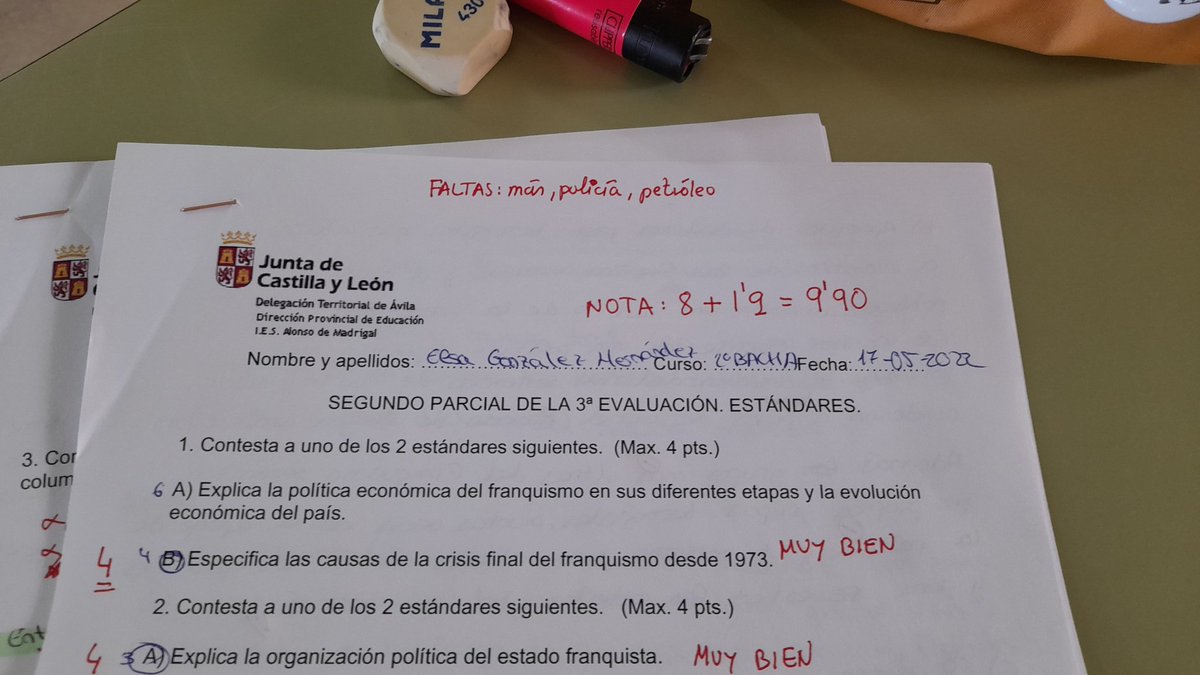 MILA
430
FALTAS: más, policía, petróleo
Junta de
Castilla y León
Delegación Territorial de Ávila
Dirección Provincial de Educación
I.E.S. Alonso de Madrigal
NOTA: 8 + 1'9 = 9'90
Nombre y apellidos: Elsa González Hernández Curso: 2º BACHA Fecha: 17-05-2022
SEGUNDO PARCIAL DE LA 3ª EVALUACIÓN. ESTÁNDARES.
1. Contesta a uno de los 2 estándares siguientes. (Max. 4 pts.)
6 A) Explica la política económica del franquismo en sus diferentes etapas y la evolución
económica del país.
4 4 B) Especifica las causas de la crisis final del franquismo desde 1973. MUY BIEN
2. Contesta a uno de los 2 estándares siguientes. (Max. 4 pts.)
4 3 A) Explica la organización política del estado franquista. MUY BIEN
3. Cor
colum
Ent